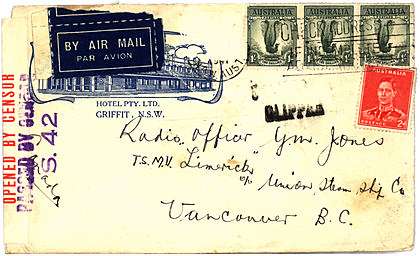 BY AIR MAIL
PAR AVION
AUSTRALIA AUSTRALIA AUSTRALIA
AUSTRALIA
HOTEL PTY. LTD.
GRIFFIT , N.S.W.
OPENED BY CENSOR
PASSED BY CENSOR
S. 42
CLIPPER
Radio Officer G.M. Jones
T.S.M.V. "Limerick"
c/o Union Steam Ship Co
Vancouver B.C.